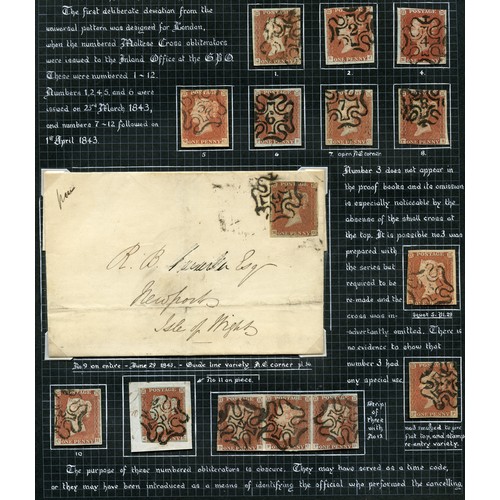 The first deliberate deviation from the
universal pattern was designed for London,
when the numbered Maltese Cross obliterators
were issued to the Inland Office at the G.P.O.
These were numbered 1 - 12.
Numbers 1, 2, 4, 5, and 6 were
issued on 23rd March 1843,
and numbers 7-12 followed on
1st April 1843.
1.
2.
4.
5
6.
7. open N.E. corner
8.
POSTAGE
ONE PENNY
R. B. Esq
Newport
Isle of Wight
Number 3 does not appear in
the proof books and its omission
is especially noticeable by the
absence of the small cross at
the top. It is possible no.3 was
prepared with
the series but
required to be
re-made and the
cross was in-
advertently omitted. There is
no evidence to show that
number 3 had
any special use.
No 9 on entire - June 29 1843. - Guide line variety N.E. corner pl.
No 11 on piece.
10
Strip
of
three
with
No 12
The purpose of these numbered obliterators is obscure. They may have served as a time code,
or they may have been introduced as a means of identifying the official who performed the cancelling.